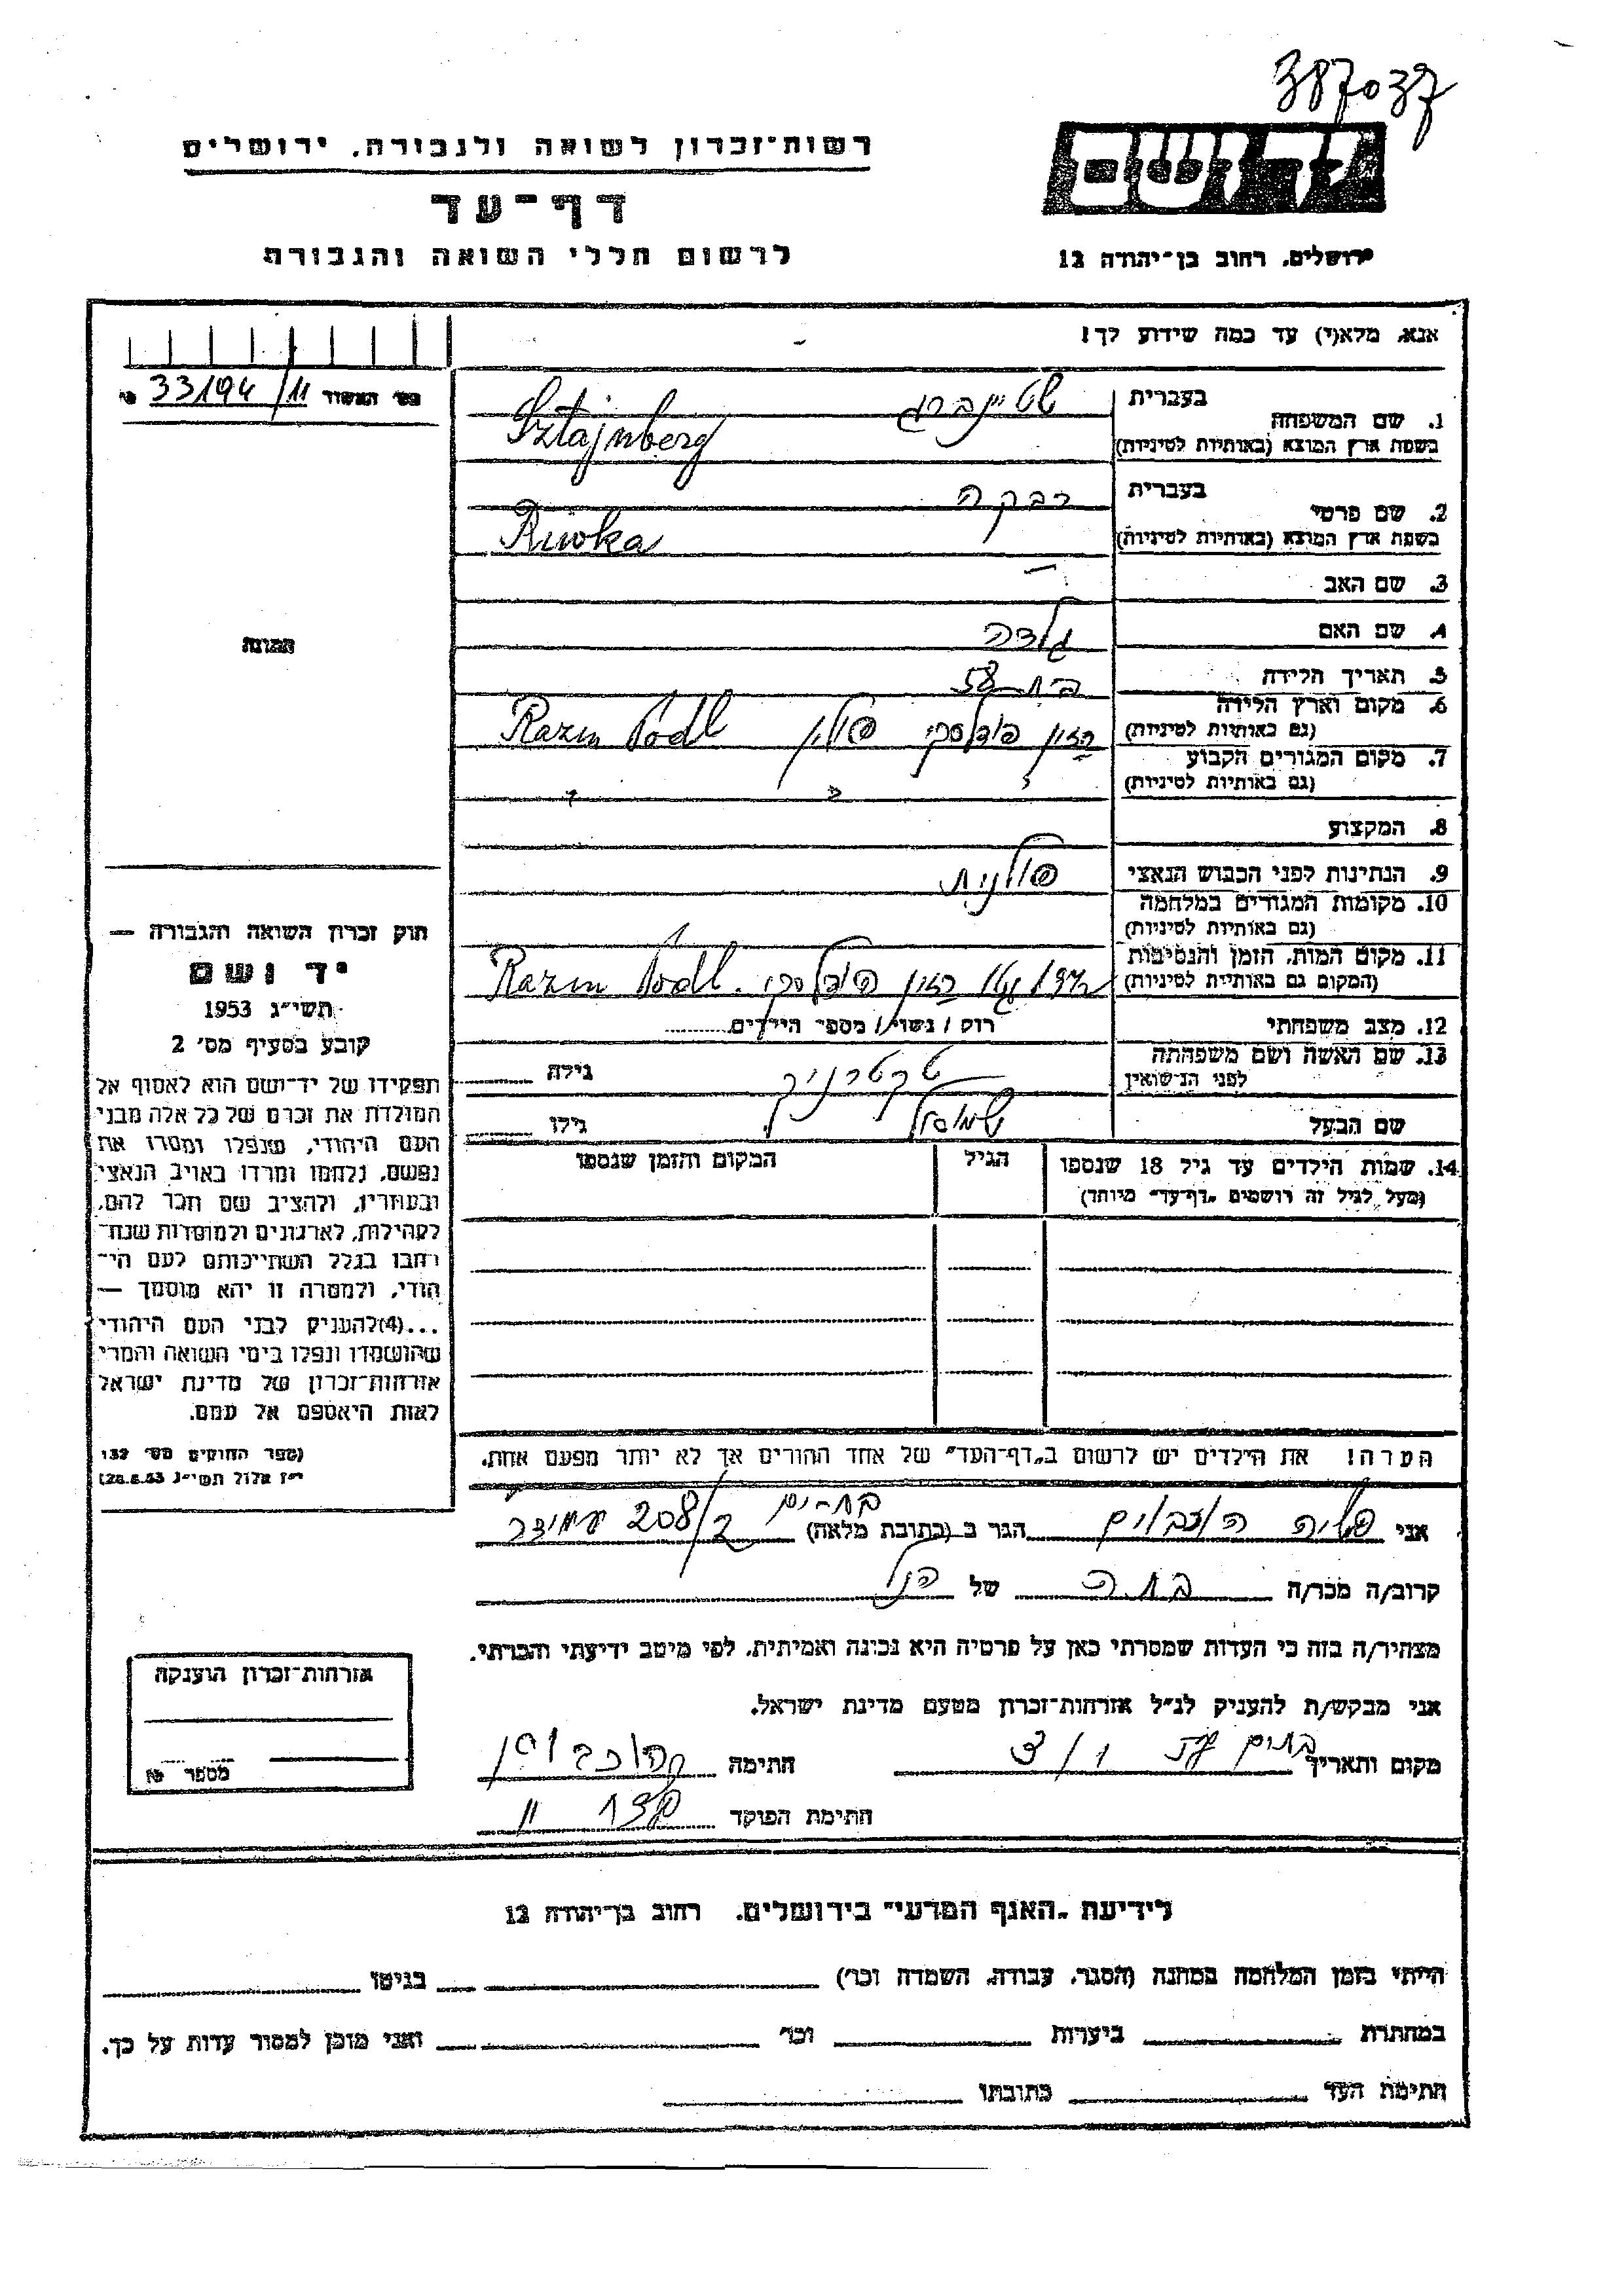 387037
רשות-זכרון לשואה ולגבורה, ירושלים
דף-עד
לרשום חללי השואה והגבורה
ירושלים, רחוב בן-יהודה 12
אנא, מלא(י) עד כמה שידוע לך!
33194/11
1. שם המשפחה
בעברית שטיינברג
בשפת ארץ המוצא (באותיות לטיניות) Sztajnberg
2. שם פרטי
בעברית רבקה
בשפת ארץ המוצא (באותיות לטיניות) Riwka
3. שם האב —
4. שם האם גולדה
5. תאריך הלידה בת 58
6. מקום וארץ הלידה
(גם באותיות לטיניות) פולין Razin Podl
7. מקום המגורים הקבוע
(גם באותיות לטיניות) " " "
8. המקצוע
9. הנתינות לפני הכבוש הנאצי פולנית
10. מקומות המגורים במלחמה
(גם באותיות לטיניות)
11. מקום המות, הזמן והנסיבות
(המקום גם באותיות לטיניות) Razin Podl.
12. מצב משפחתי רוק / נשוי / מספר הילדים
13. שם האשה ושם משפחתה
לפני הנישואין גילה
שם הבעל שמואל גילו
14. שמות הילדים עד גיל 18 שנספו הגיל המקום והזמן שנספו
(מעל לגיל זה רושמים "דף-עד" מיוחד)
הערה! את הילדים יש לרשום ב"דף-העד" של אחד ההורים אך לא יותר מפעם אחת.
התמונה
חוק זכרון השואה והגבורה —
יד ושם
תשי"ג 1953
קובע בסעיף מס' 2
תפקידו של יד-ושם הוא לאסוף אל
המולדת את זכרם של כל אלה מבני
העם היהודי, שנפלו ומסרו את
נפשם, נלחמו ומרדו באויב הנאצי
ובעוזריו, ולהציב שם וזכר להם,
לקהילות, לארגונים ולמוסדות שנח-
רבו בגלל השתייכותם לעם הי-
הודי, ולמטרה זו יהא מוסמך —
...(4) להעניק לבני העם היהודי
שהושמדו ונפלו בימי השואה והמרי
אזרחות-זכרון של מדינת ישראל
לאות היאספם אל עמם.
(ספר החוקים מס' 132
י"ז אלול תשי"ג 28.8.53)
אני הגר ב (כתובת מלאה) בת-ים 208/2 עמידר
קרוב/ה מכר/ה בתה של הנ"ל
מצהיר/ה בזה כי העדות שמסרתי כאן על פרטיה היא נכונה ואמיתית, לפי מיטב ידיעתי והכרתי.
אני מבקש/ת להעניק לנ"ל אזרחות-זכרון מטעם מדינת ישראל.
מקום ותאריך בת-ים חתימה
חתימת הפוקד
אזרחות-זכרון הוענקה
מספר
לידיעת "האגף המדעי" בירושלים, רחוב בן-יהודה 12
הייתי בזמן המלחמה במחנה (הסגר, עבודה, השמדה וכו') בגיטו
במחתרת ביערות וכו' ואני מוכן למסור עדות על כך.
חתימת העד כתובתו